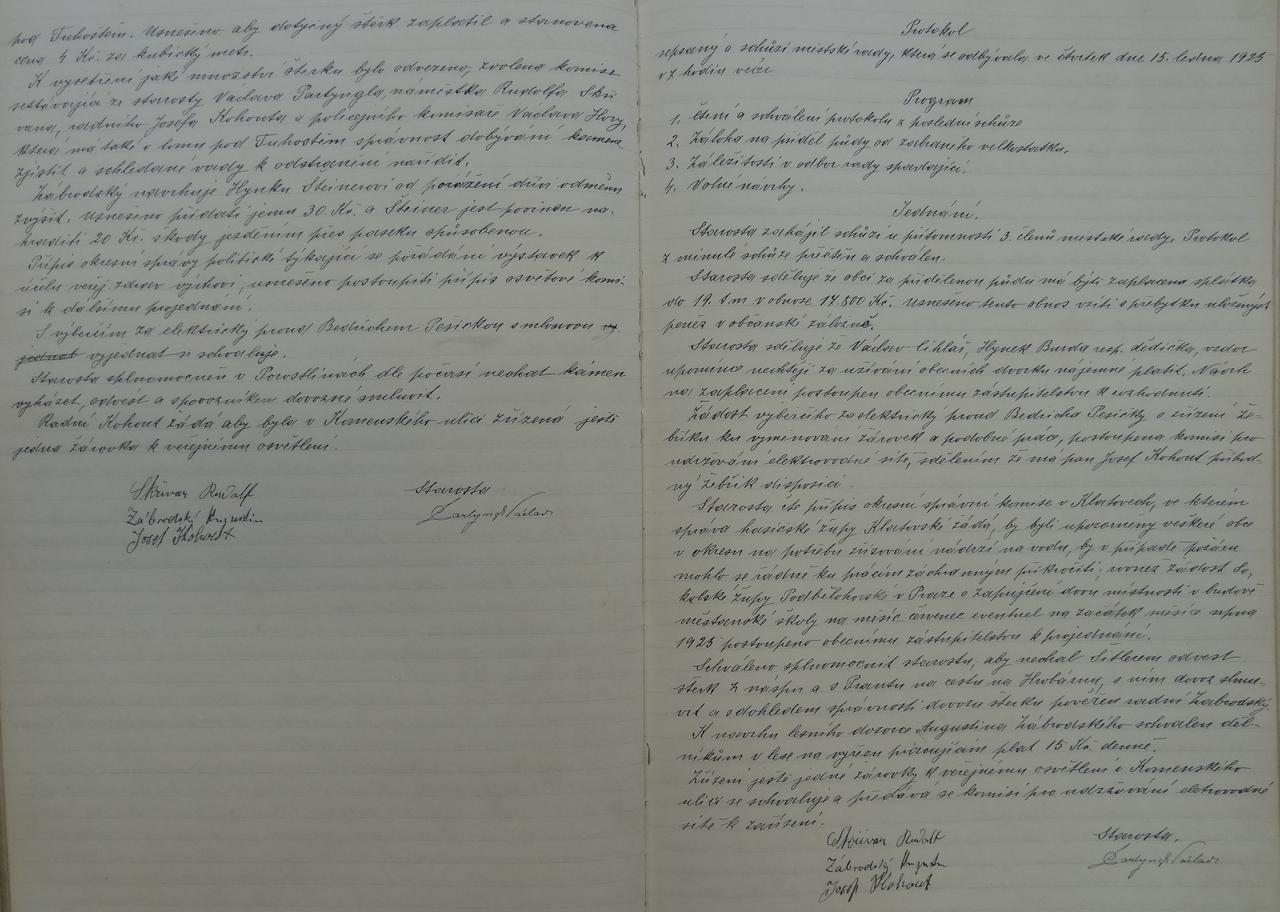 pod Tuhoštěm. Usneseno aby dotyčný štěrk zaplatil a stanovena
cena 4 Kč. za kubický metr.
K vyšetření jaké množství štěrku bylo odvezeno, zvolena komise
sestávající ze starosty Václava Partyngla, náměstka Rudolfa Skři
vana, radního Josefa Kohouta a policejního komisaře Václava
která má také v lomu pod Tuhoštěm správnost dobývání kamene
zjistit a shledané vady k odstranění nařídit.
Zábrodský navrhuje Hynku Steinerovi od porážení dříví odměnu
zvýšit. Usneseno přidati jemu 30 Kč. a Steiner jest povinen na-
hraditi 20 Kč. škody jezděním přes paseku způsobenou.
Přípis okresní správy politické týkající se pořádání výstavek k
účelu veřej. zdrav. výchovy, usneseno postoupiti přípis osvětové komi-
si k dalšímu projednání.
S výběrčím za elektrický proud Bedřichem Pešičkou smlouvu vy-
jednat vyjednat se schvaluje.
Starosta splnomocněn v Porostlinách dle počasí nechat kámen
vyházet, odvést a s povozníkem dovozné smluvit.
Radní Kohout žádá aby byla v Komenského ulici zřízená ještě
jedna žárovka k veřejnému osvětlení.
Skřivan Rudolf
Starosta
Zábrodský Augustin
Partyngl Václav
Josef Kohout
Protokol
sepsaný o schůzi městské rady, která se odbývala ve čtvrtek dne 15. ledna 1925
v 7 hodin večer
Program
1. Čtení a schválení protokolu z poslední schůze
2. Záloha na příděl půdy od zabraného velkostatku.
3. Záležitosti v odbor rady spadající.
4. Volné návrhy.
Jednání.
Starosta zahájil schůzi u přítomnosti 3. členů městské rady. Protokol
z minulé schůze přečten a schválen.
Starosta sděluje že obcí za přidělenou půdu má býti zaplacena splátka
do 19. t.m v obnose 17.800 Kč. Usneseno tento obnos vzíti s přebytku uložených
peněz v občanské záložně.
Starosta sděluje že Václav Cihlář, Hynek Burda resp. dědička, vzdor
upomínce nechtějí za užívání obecních dvorků nájemné platit. Návrh
na zaplacení postoupen obecnímu zastupitelstvu k rozhodnutí.
Žádost výběrčího za elektrický proud Bedřicha Pešičky o zřízení že-
bříku ku vyměnování žárovek a podobné práce, postoupena komisi pro
udržování elektrovodné sítě, sdělením že má pan Josef Kohout příhod-
ný žebřík disposici.
Starosta čte přípis okresní správní komise v Klatovech, ve kterém
správa hasičské župy Klatovské žádá, by byli upozorněny veškeré obce
v okresu na potřebu zřizování nádrží na vodu, by v případě požáru
mohlo se řádně ku pracím záchranným přikročiti; rovněž žádost So-
kolské župy Podbělohorské v Praze o zapůjčení dvou místností v budově
měšťanské školy na měsíc červenec eventuel na začátek měsíce srpna
1925 postoupeno obecnímu zastupitelstvu k projednání.
Schváleno splnomocnit starostu, aby nechal Šitlerem odvést
štěrk z náspu a s Prantu na cestu na Hrobárnu, s ním dovoz smlu-
vit a s dohledem správnosti dovozu štěrku pověřen radní Zábrodský.
K návrhu lesního dozorce Augustina Zábrodského schválen děl-
níkům v lese na výřezu pracujícím plat 15 Kč denně.
Zřízení ještě jedné žárovky k veřejnému osvětlení v Komenského
ulici se schvaluje a předává se komisi pro udržování eletrovodné
sítě k zařízení.
Skřivan Rudolf
Starosta.
Zábrodský Augustin
Partyngl Václav
Josef Kohout